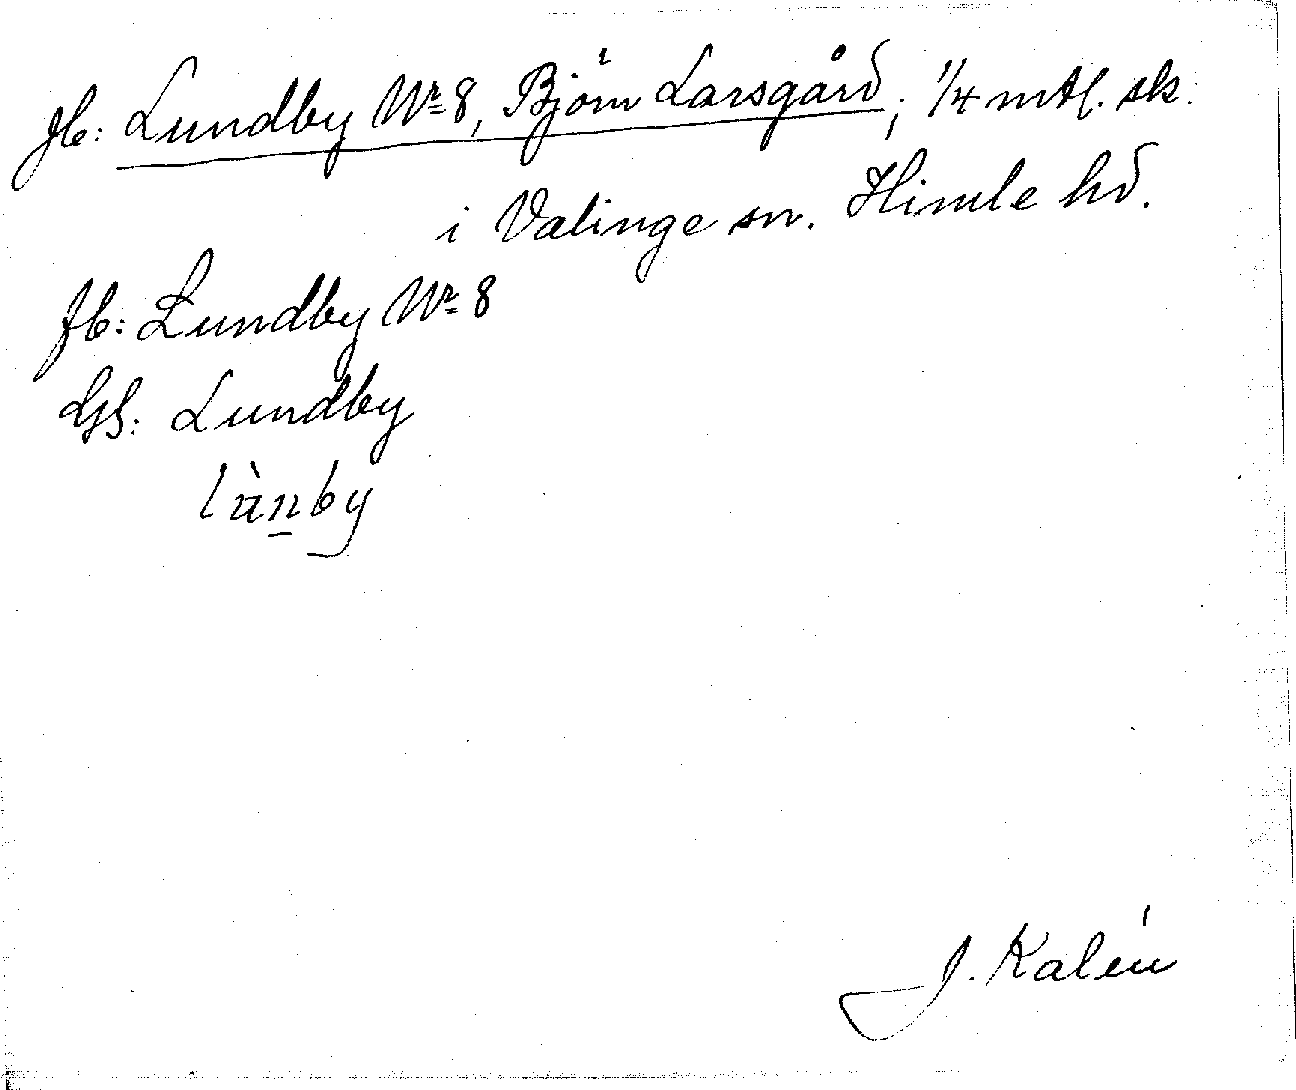 Jb: Lundby Nr 8, Björn Larsgård; 1/4 mtl. sk.
i Valinge sn. Himle hd.
Jb: Lundby Nr 8
GS: Lundby
lùn̲by
J. Kalén